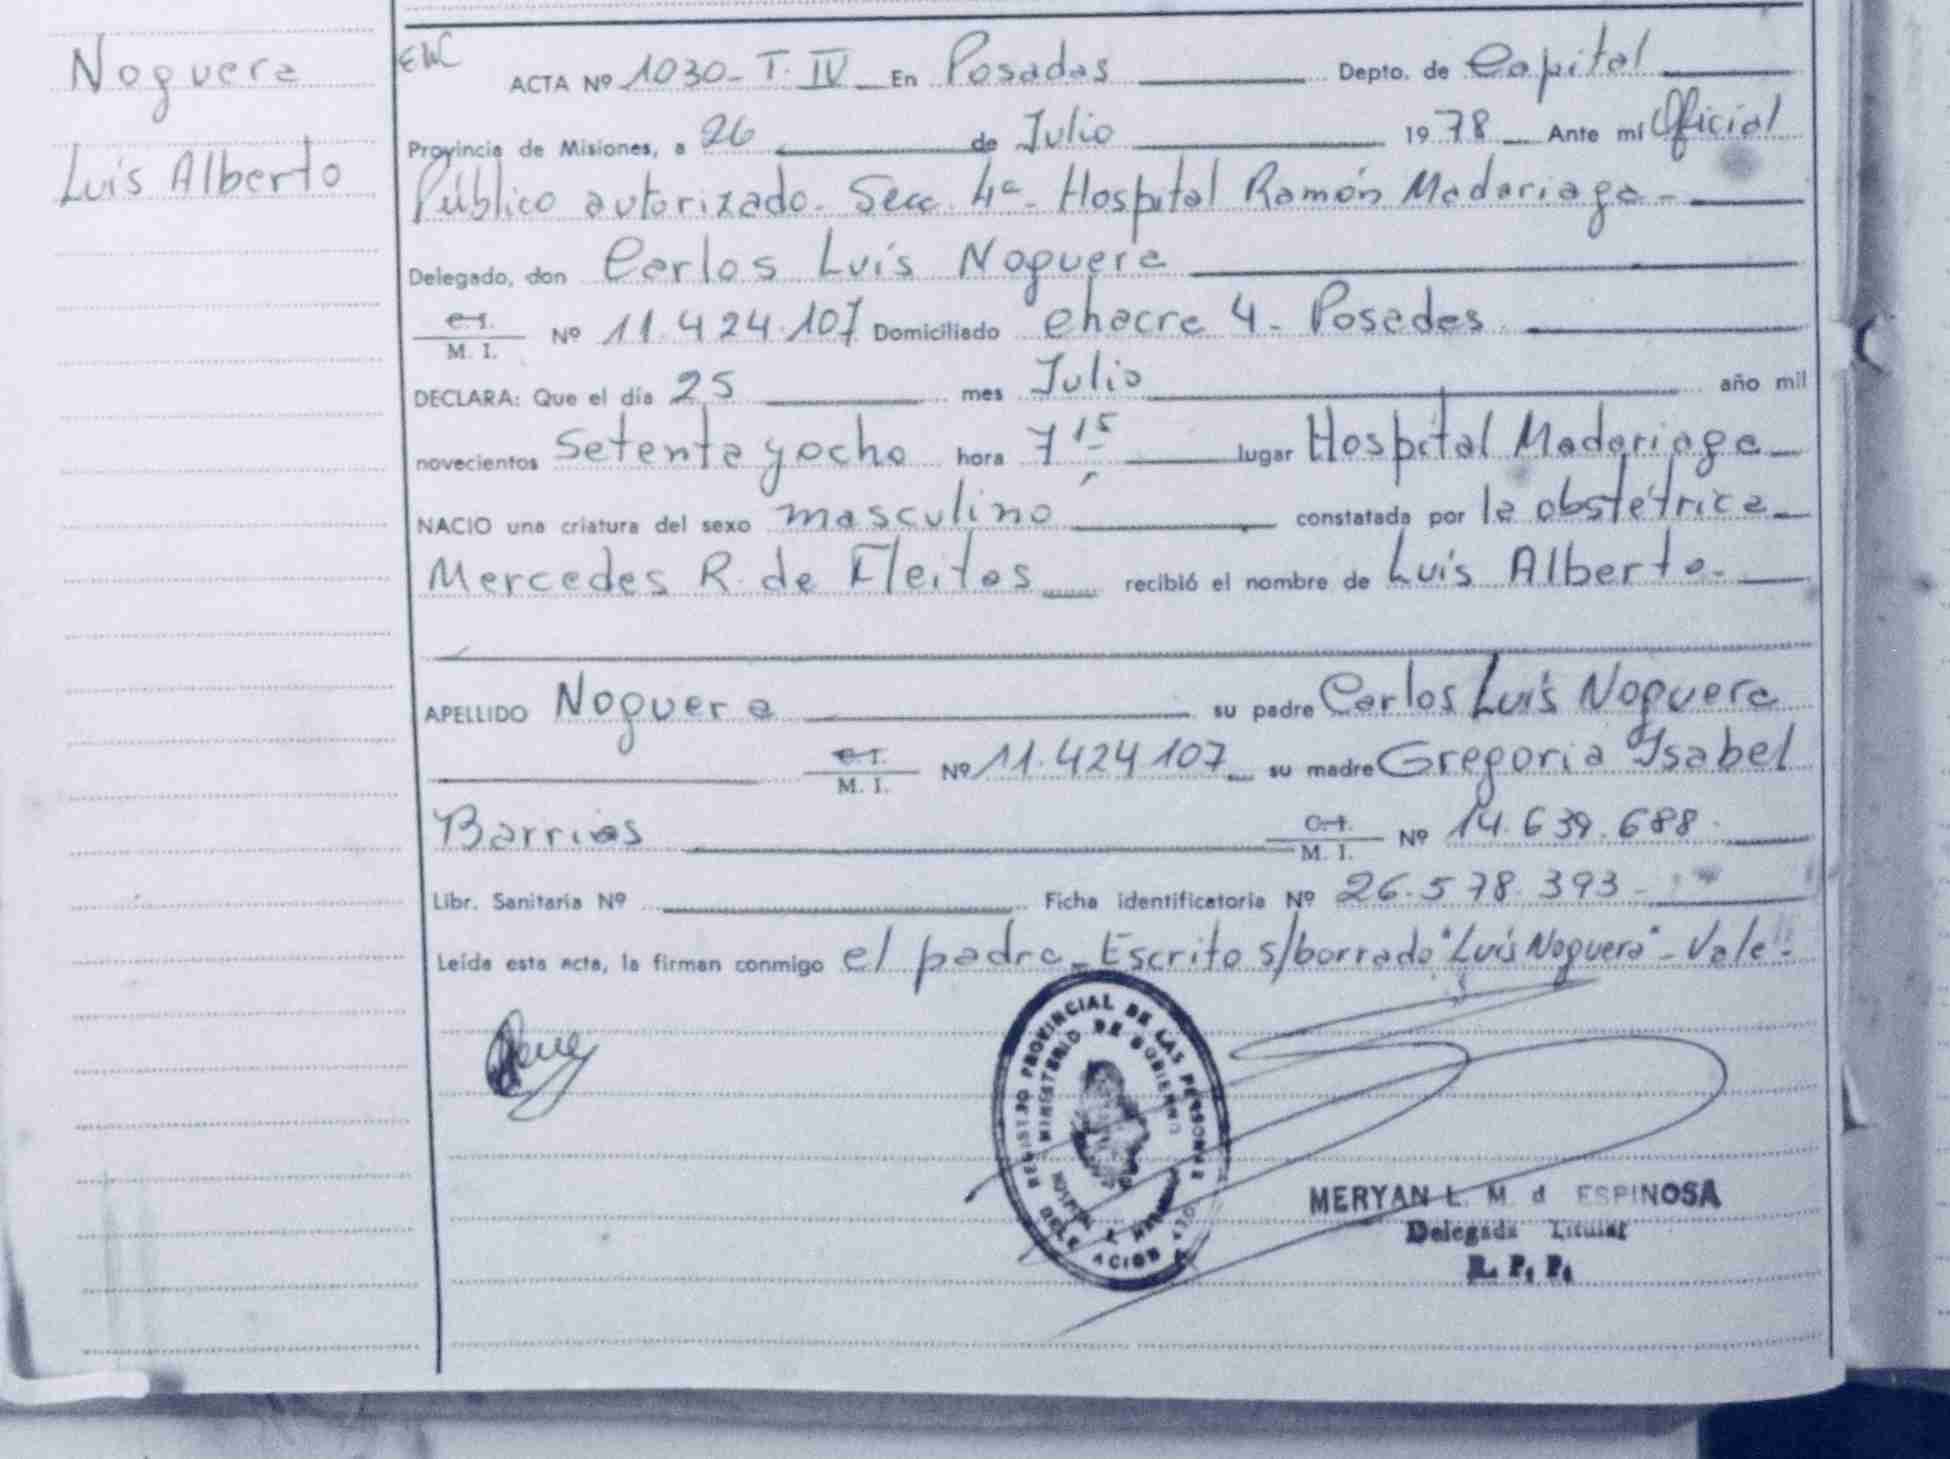 Noguera
Luis Alberto
ACTA Nº 1030 - T. IV En Posadas Depto. de Capital
Provincia de Misiones, a 26 de Julio 1978 Ante mí Oficial
Público autorizado. Secc. 4ª - Hospital Ramón Madariaga -
Delegado, don Carlos Luis Noguera
C.I. M. I. Nº 11.424.107 Domiciliado chacra 4 - Posadas
DECLARA: Que el día 25 mes Julio año mil
novecientos Setenta y ocho hora 7 15 lugar Hospital Madariaga
NACIO una criatura del sexo masculino constatada por la obstétrica
Mercedes R. de Fleitas recibió el nombre de Luis Alberto.
APELLIDO Noguera su padre Carlos Luis Noguera
C.I. M. I. Nº 11.424 107 su madre Gregoria Isabel
Barrios C.I. M. I. Nº 14.639.688
Libr. Sanitaria Nº Ficha identificatoria Nº 26.578.393 -
Leída esta acta, la firman conmigo el padre - Escrito s/borrado "Luis Noguera" - Vale -
REGISTRO PROVINCIAL DE LAS PERSONAS
MINISTERIO DE GOBIERNO
DELEGACION
MERYAN L. M. d ESPINOSA
Delegada Titular
R. P. P.